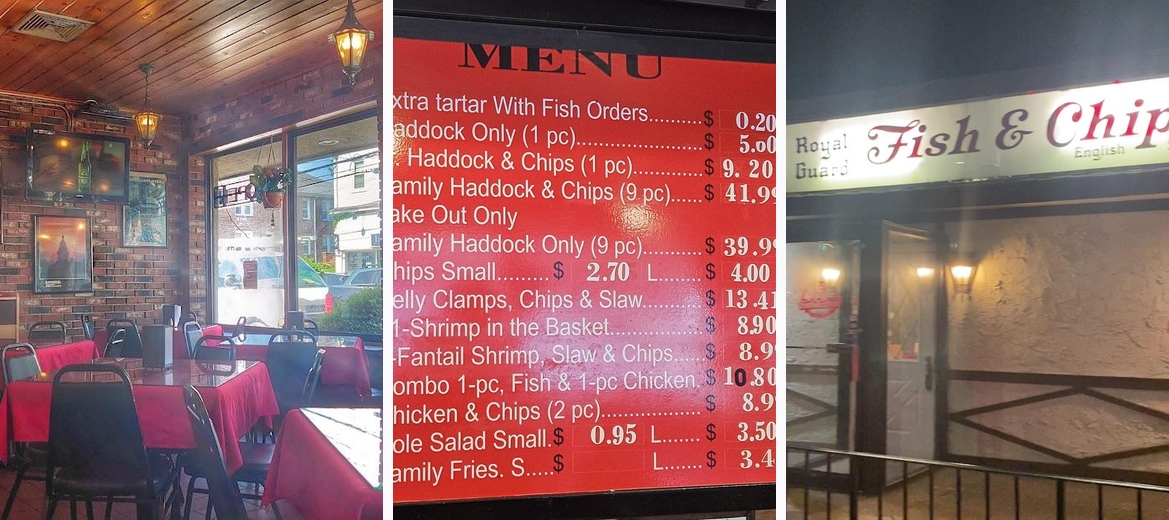 OPEN
MENU
xtra tartar With Fish Orders.........$ 0.20
addock Only (1 pc)......................$ 5.00
. Haddock & Chips (1 pc).............$ 9. 20
amily Haddock & Chips (9 pc)......$ 41.99
ake Out Only
amily Haddock Only (9 pc)..........$ 39.99
hips Small.........$ 2.70 L.......$ 4.00
elly Clamps, Chips & Slaw...........$ 13.41
1-Shrimp in the Basket................$ 8.90
-Fantail Shrimp, Slaw & Chips.....$ 8.99
ombo 1-pc, Fish & 1-pc Chicken.$ 10.80
hicken & Chips (2 pc)..................$ 8.99
ole Salad Small.$ 0.95 L.......$ 3.50
amily Fries. S.....$ L.......$ 3.4
Royal
Guard
Fish & Chip
English